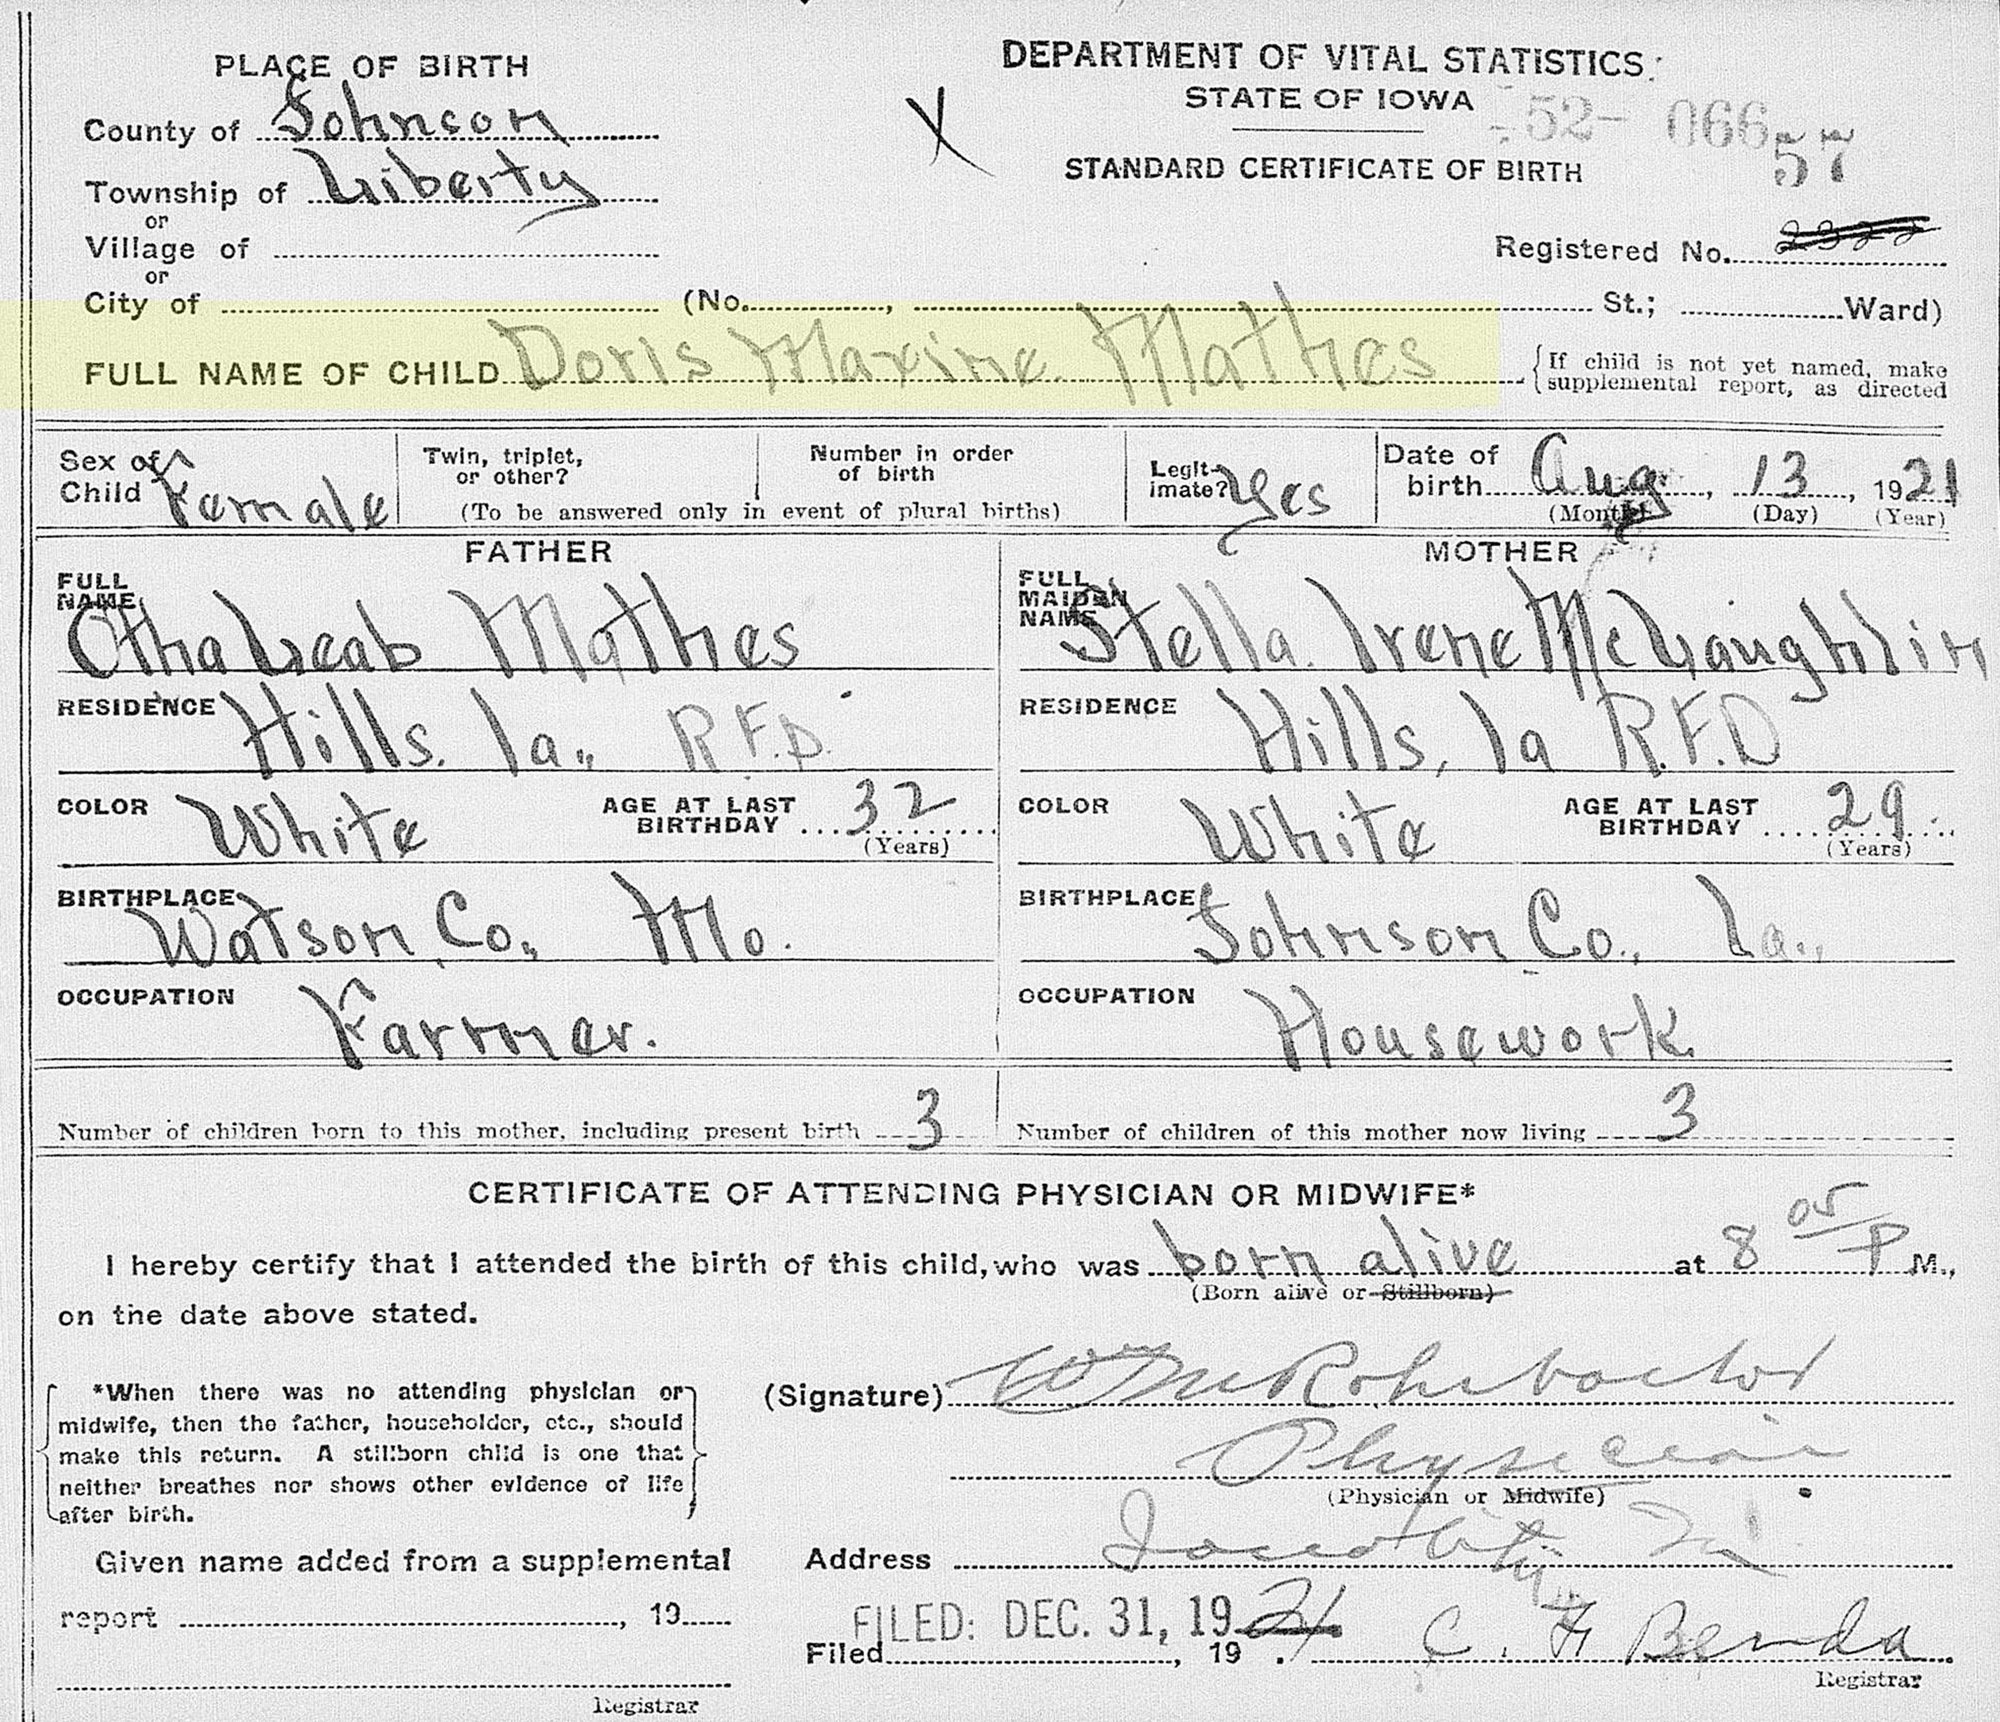 PLACE OF BIRTH
County of Johnson
Township of Liberty
or
Village of
or
City of (No. , St.; Ward)
DEPARTMENT OF VITAL STATISTICS
STATE OF IOWA
52- 06657
STANDARD CERTIFICATE OF BIRTH
Registered No.
X
FULL NAME OF CHILD Doris Maxine Mathes
If child is not yet named, make
supplemental report, as directed
Sex of
Child Female
Twin, triplet,
or other?
Number in order
of birth
(To be answered only in event of plural births)
Legit-
imate? Yes
Date of
birth Aug, 13, 1921
(Month) (Day) (Year)
FATHER
FULL
NAME
Otha Leab Mathes
RESIDENCE Hills. Ia., R.F.D.
COLOR White AGE AT LAST
BIRTHDAY 32
(Years)
BIRTHPLACE Watson, Co., Mo.
OCCUPATION Farmer.
MOTHER
FULL
MAIDEN
NAME
Stella Irene McLaughlin
RESIDENCE Hills, Ia R.F.D
COLOR White AGE AT LAST
BIRTHDAY 29.
(Years)
BIRTHPLACE Johnson Co., Ia.,
OCCUPATION Housework.
Number of children born to this mother, including present birth 3
Number of children of this mother now living 3
CERTIFICATE OF ATTENDING PHYSICIAN OR MIDWIFE*
I hereby certify that I attended the birth of this child, who was born alive at 8 05 P M.,
(Born alive or Stillborn)
on the date above stated.
*When there was no attending physician or
midwife, then the father, householder, etc., should
make this return. A stillborn child is one that
neither breathes nor shows other evidence of life
after birth.
(Signature) Wm Rohrbacher
Physician
(Physician or Midwife)
Given name added from a supplemental
report , 19
Registrar
Address Iowa City Ia
FILED: DEC. 31, 1921
Filed , 19 . C. F. Benda
Registrar